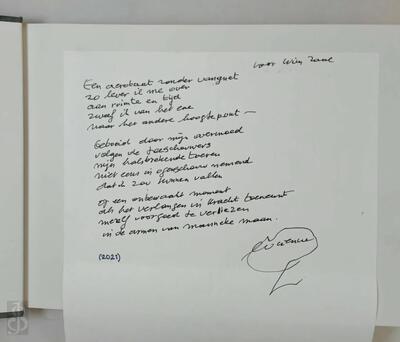 voor Wim Zaal
Een acrobaat zonder vangnet
zo lever ik me over
aan ruimte en tijd
zweef ik van het ene
naar het andere hoogtepunt —
Geboeid door mijn overmoed
volgen de toeschouwers
mijn halsbrekende toeren
niet eens in ogenschouw nemend
dat ik zou kunnen vallen
op een onbewaakt moment
als het verlangen in kracht toeneemt
mezelf voorgoed te verliezen
in de armen van manneke maan.
(2021)